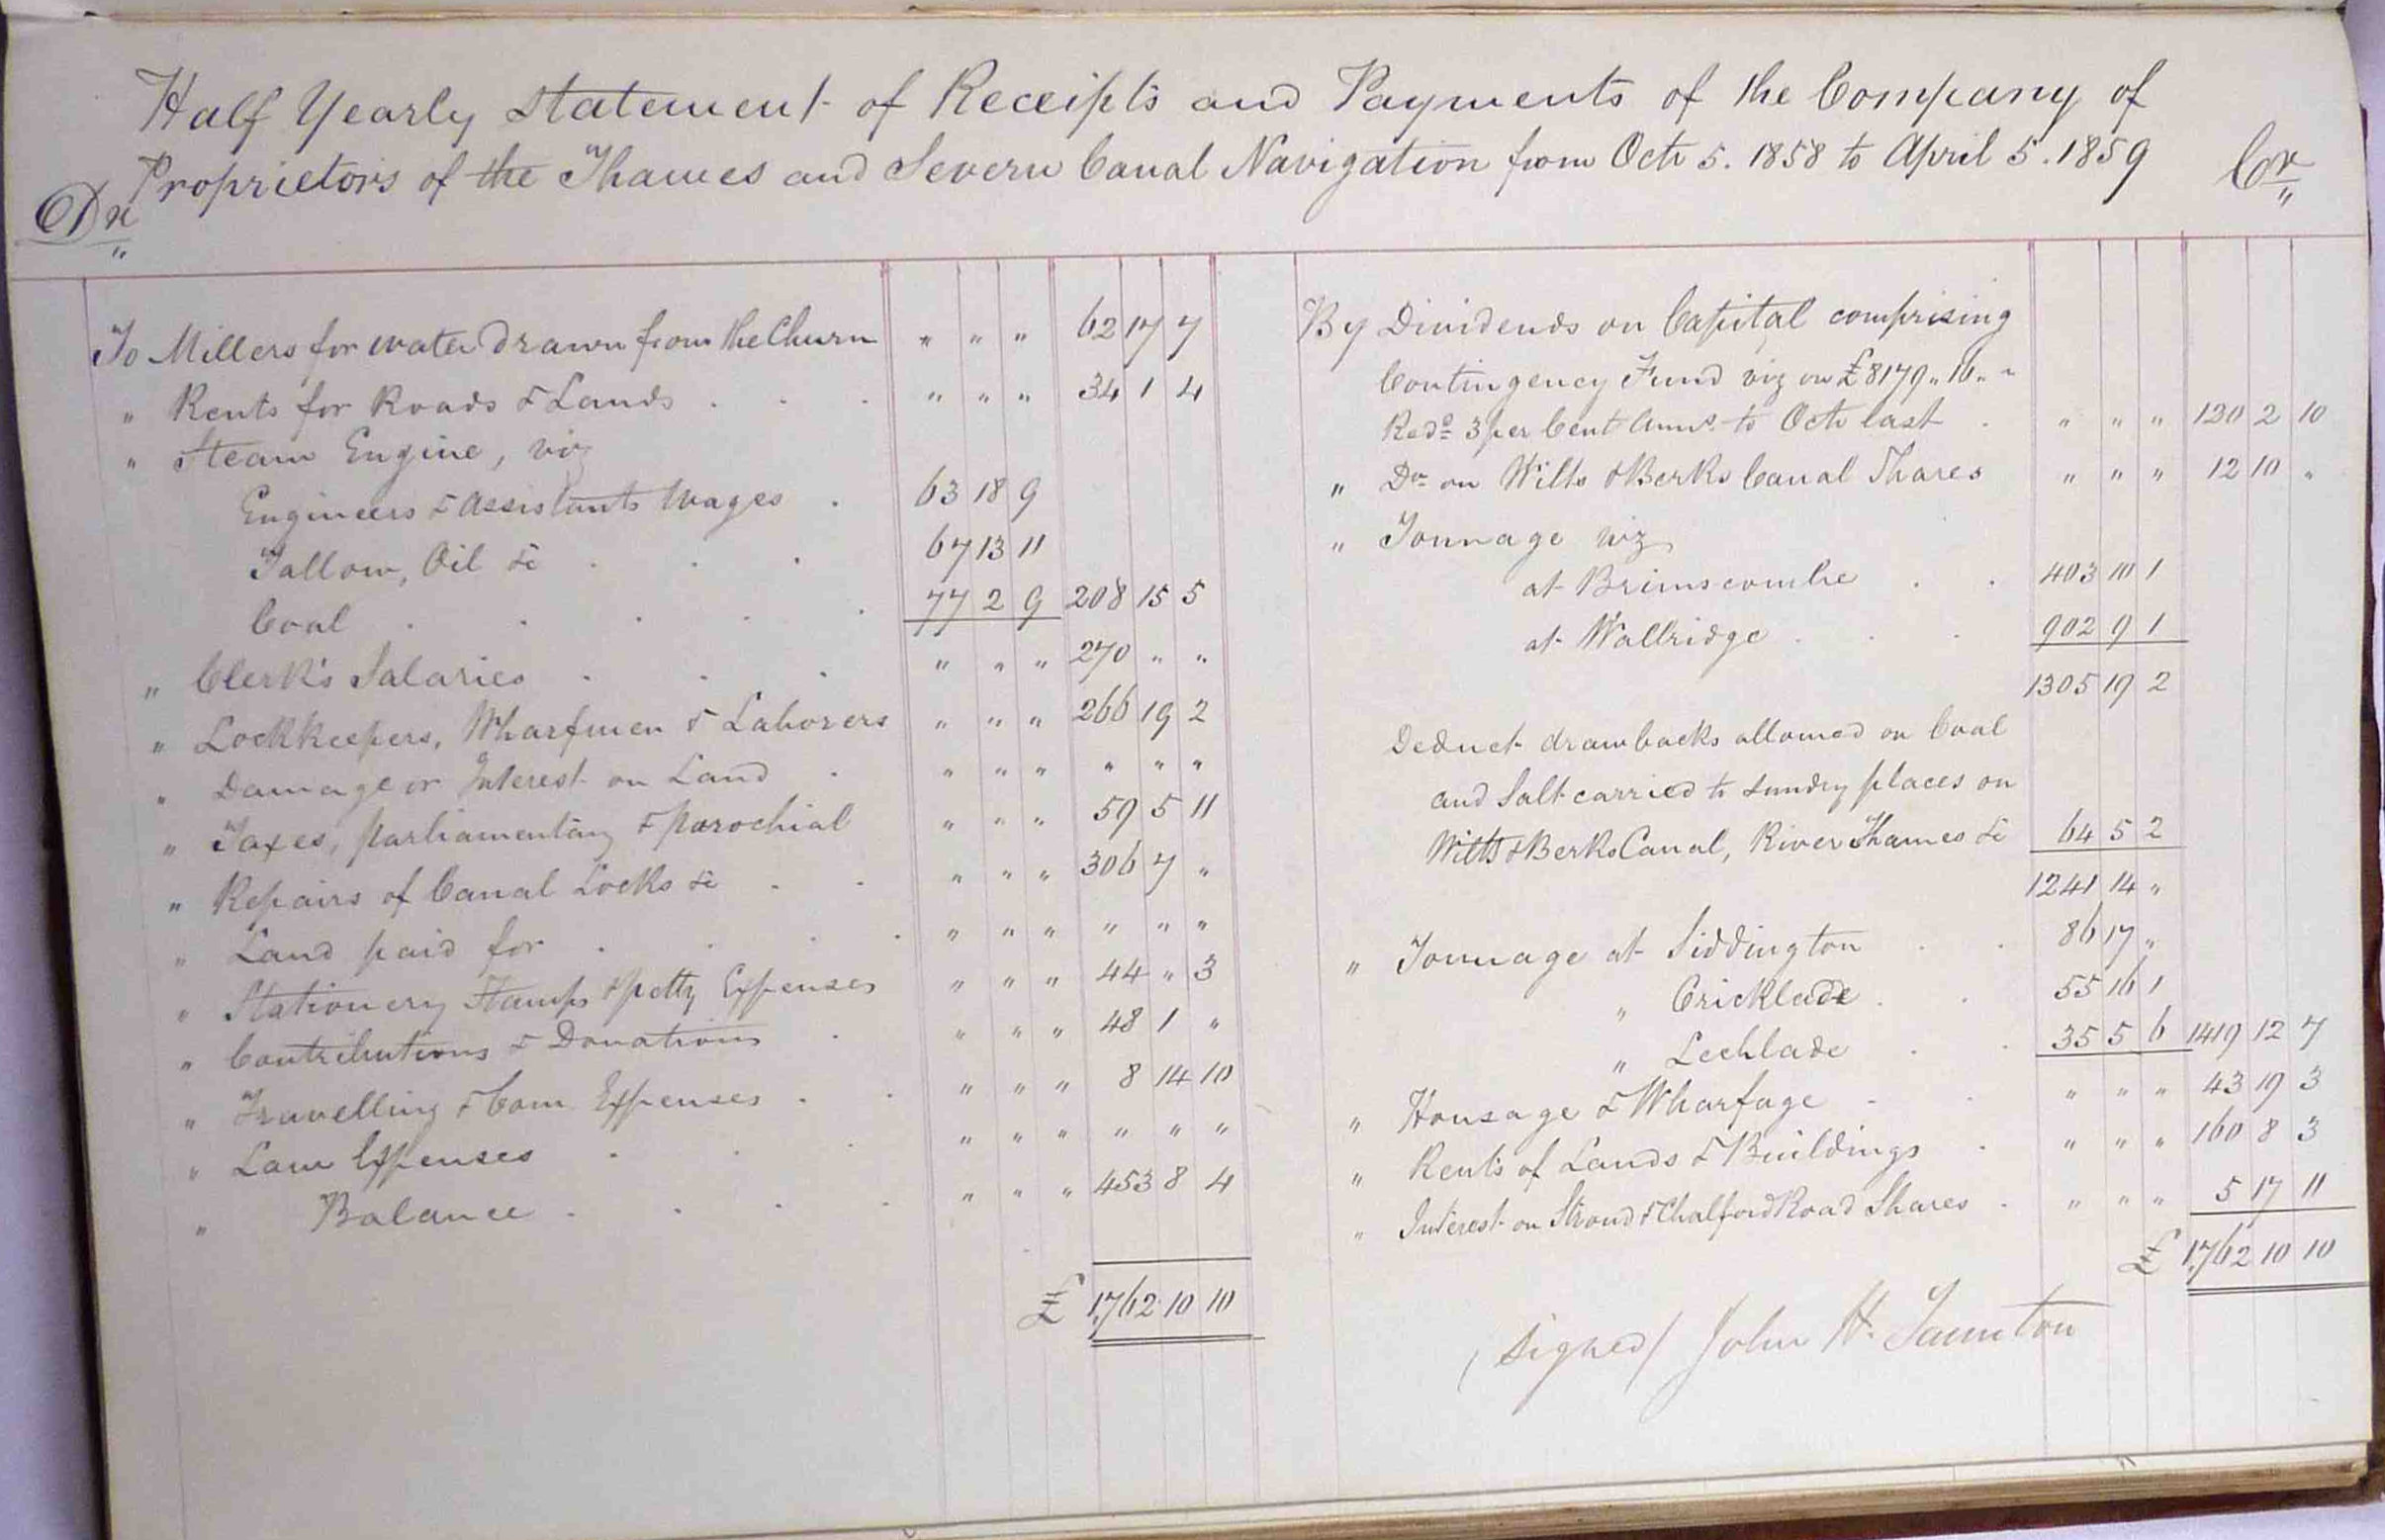 Half Yearly Statement of Receipts and Payments of the Company of
Proprietors of the Thames and Severn Canal Navigation from Octr 5. 1858 to April 5. 1859
Dr
Cr
To Millers for water drawn from the Churn " " " 62 17 7
" Rents for Roads & Lands . . . " " " 34 1 4
" Steam Engine, viz
Engineers & Assistants Wages . 63 18 9
Tallow, Oil &c . . . 67 13 11
Coal . . . . . 77 2 9 208 15 5
" Clerk's Salaries . . . " " " 270 " "
" Lockkeepers, Wharfmen & Laborers " " " 266 19 2
" Damage or Interest on Land . " " " " " "
" Taxes, parliamentary & parochial " " " 59 5 11
" Repairs of Canal Locks &c . . " " " 306 7 "
" Land paid for . . . . " " " " " "
" Stationery Stamps & petty Expenses " " " 44 " 3
" Contributions & Donations . " " " 48 1 "
" Travelling & Com Expenses . . " " " 8 14 10
" Law Expenses . . . " " " " " "
" Balance . . . . " " " 453 8 4
£ 1,762 10 10
By Dividends on Capital comprising
Contingency Fund viz on £8179 " 16 " "
Redd 3 per Cent Anns. to Octr last . " " " 130 2 10
" Do on Wilts & Berks Canal Shares " " " 12 10 "
" Tonnage viz
at Brimscombe . . 403 10 1
at Wallridge . . . 902 9 1
1305 19 2
Deduct drawbacks allowed on Coal
and Salt carried to sundry places on
Wilts & Berks Canal, River Thames &c 64 5 2
1241 14 "
" Tonnage at Siddington . . 86 17 "
" Cricklade . . 55 16 1
" Lechlade . . 35 5 6 1419 12 7
" Housage & Wharfage . . " " " 43 19 3
" Rents of Lands & Buildings . " " " 160 8 3
" Interest on Stroud & Chalford Road Shares . " " " 5 17 11
£ 1,762 10 10
(signed) John H. Taunton